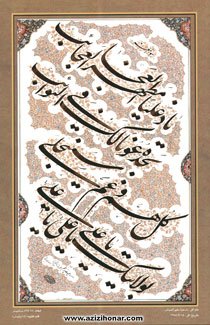 www.azizihonar.com
ناد علیا مظهر العجائب
تجده عونا لک فی النوائب
کل هم و غم سینجلی
بولایتک یا علی یا علی یا علی
www.azizihonar.com